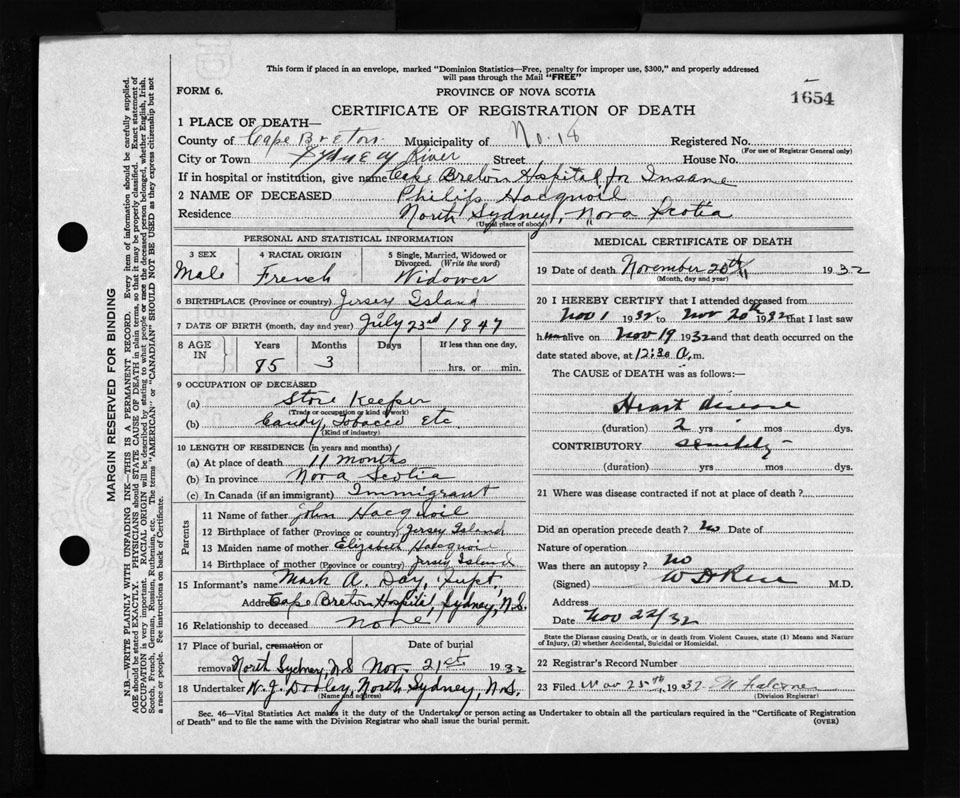 This form if placed in an envelope, marked "Dominion Statistics—Free, penalty for improper use, $300," and properly addressed
will pass through the Mail "FREE"
FORM 6.
PROVINCE OF NOVA SCOTIA
1654
CERTIFICATE OF REGISTRATION OF DEATH
1 PLACE OF DEATH—
County of Cape Breton Municipality of No. 18 Registered No.
(For use of Registrar General only)
City or Town Sydney River Street House No.
If in hospital or institution, give name Cape Breton Hospital for Insane
2 NAME OF DECEASED Philip Hacquoil
Residence North Sydney, Nova Scotia
(Usual place of abode)
PERSONAL AND STATISTICAL INFORMATION
3 SEX
Male
4 RACIAL ORIGIN
French
5 Single, Married, Widowed or
Divorced. (Write the word)
Widower
6 BIRTHPLACE (Province or country) Jersey Island
7 DATE OF BIRTH (month, day and year) July 23rd 1847
8 AGE IN
Years Months Days If less than one day,
85 3 hrs. or min.
9 OCCUPATION OF DECEASED
(a) Store Keeper
(Trade or occupation or kind of work)
(b) Candy, Tobacco Etc
(Kind of industry)
10 LENGTH OF RESIDENCE (in years and months)
(a) At place of death 11 months
(b) In province Nova Scotia
(c) In Canada (if an immigrant) Immigrant
Parents
11 Name of father John Hacquoil
12 Birthplace of father (Province or country) Jersey Island
13 Maiden name of mother Elizabeth
14 Birthplace of mother (Province or country) Jersey Island
15 Informant's name Mark A. Day, Supt.
Address Cape Breton Hospital, Sydney, N.S.
16 Relationship to deceased none
17 Place of burial, cremation or Date of burial
removal North Sydney, N.S Nov. 21st 1932
18 Undertaker N. J. Dooley, North Sydney, N.S.
(Name and address)
MEDICAL CERTIFICATE OF DEATH
19 Date of death November 20th 1932
(Month, day and year)
20 I HEREBY CERTIFY that I attended deceased from
Nov 1 1932 to Nov 20th 1932 that I last saw
him alive on Nov 19 1932 and that death occurred on the
date stated above, at 12:30 a.m.
The CAUSE of DEATH was as follows:—
Heart disease
(duration) 2 yrs mos dys.
CONTRIBUTORY senility
(duration) yrs mos dys.
21 Where was disease contracted if not at place of death?
Did an operation precede death? no Date of
Nature of operation
Was there an autopsy? no
(Signed) M.D.
Address
Date Nov 22/32
State the Disease causing Death, or in death from Violent Causes, state (1) Means and Nature
of Injury, (2) whether Accidental, Suicidal or Homicidal.
22 Registrar's Record Number
23 Filed Nov 25th 1932
(Division Registrar)
Sec. 46—Vital Statistics Act makes it the duty of the Undertaker or person acting as Undertaker to obtain all the particulars required in the "Certificate of Registration
of Death" and to file the same with the Division Registrar who shall issue the burial permit.
(OVER)
MARGIN RESERVED FOR BINDING
N.B.—WRITE PLAINLY WITH UNFADING INK—THIS IS A PERMANENT RECORD. Every item of information should be carefully supplied.
AGE should be stated EXACTLY. PHYSICIANS should STATE CAUSE OF DEATH in plain terms, so that it may be properly classified. Exact statement of
OCCUPATION is very important. RACIAL ORIGIN will be described by stating to what people or race the deceased person belonged, whether English, Irish,
Scotch, French, German, Russian, Ruthenian, etc. The terms "AMERICAN" or "CANADIAN" SHOULD NOT BE USED as they express citizenship but not
a race or people. Fee instructions on back of Certificate.